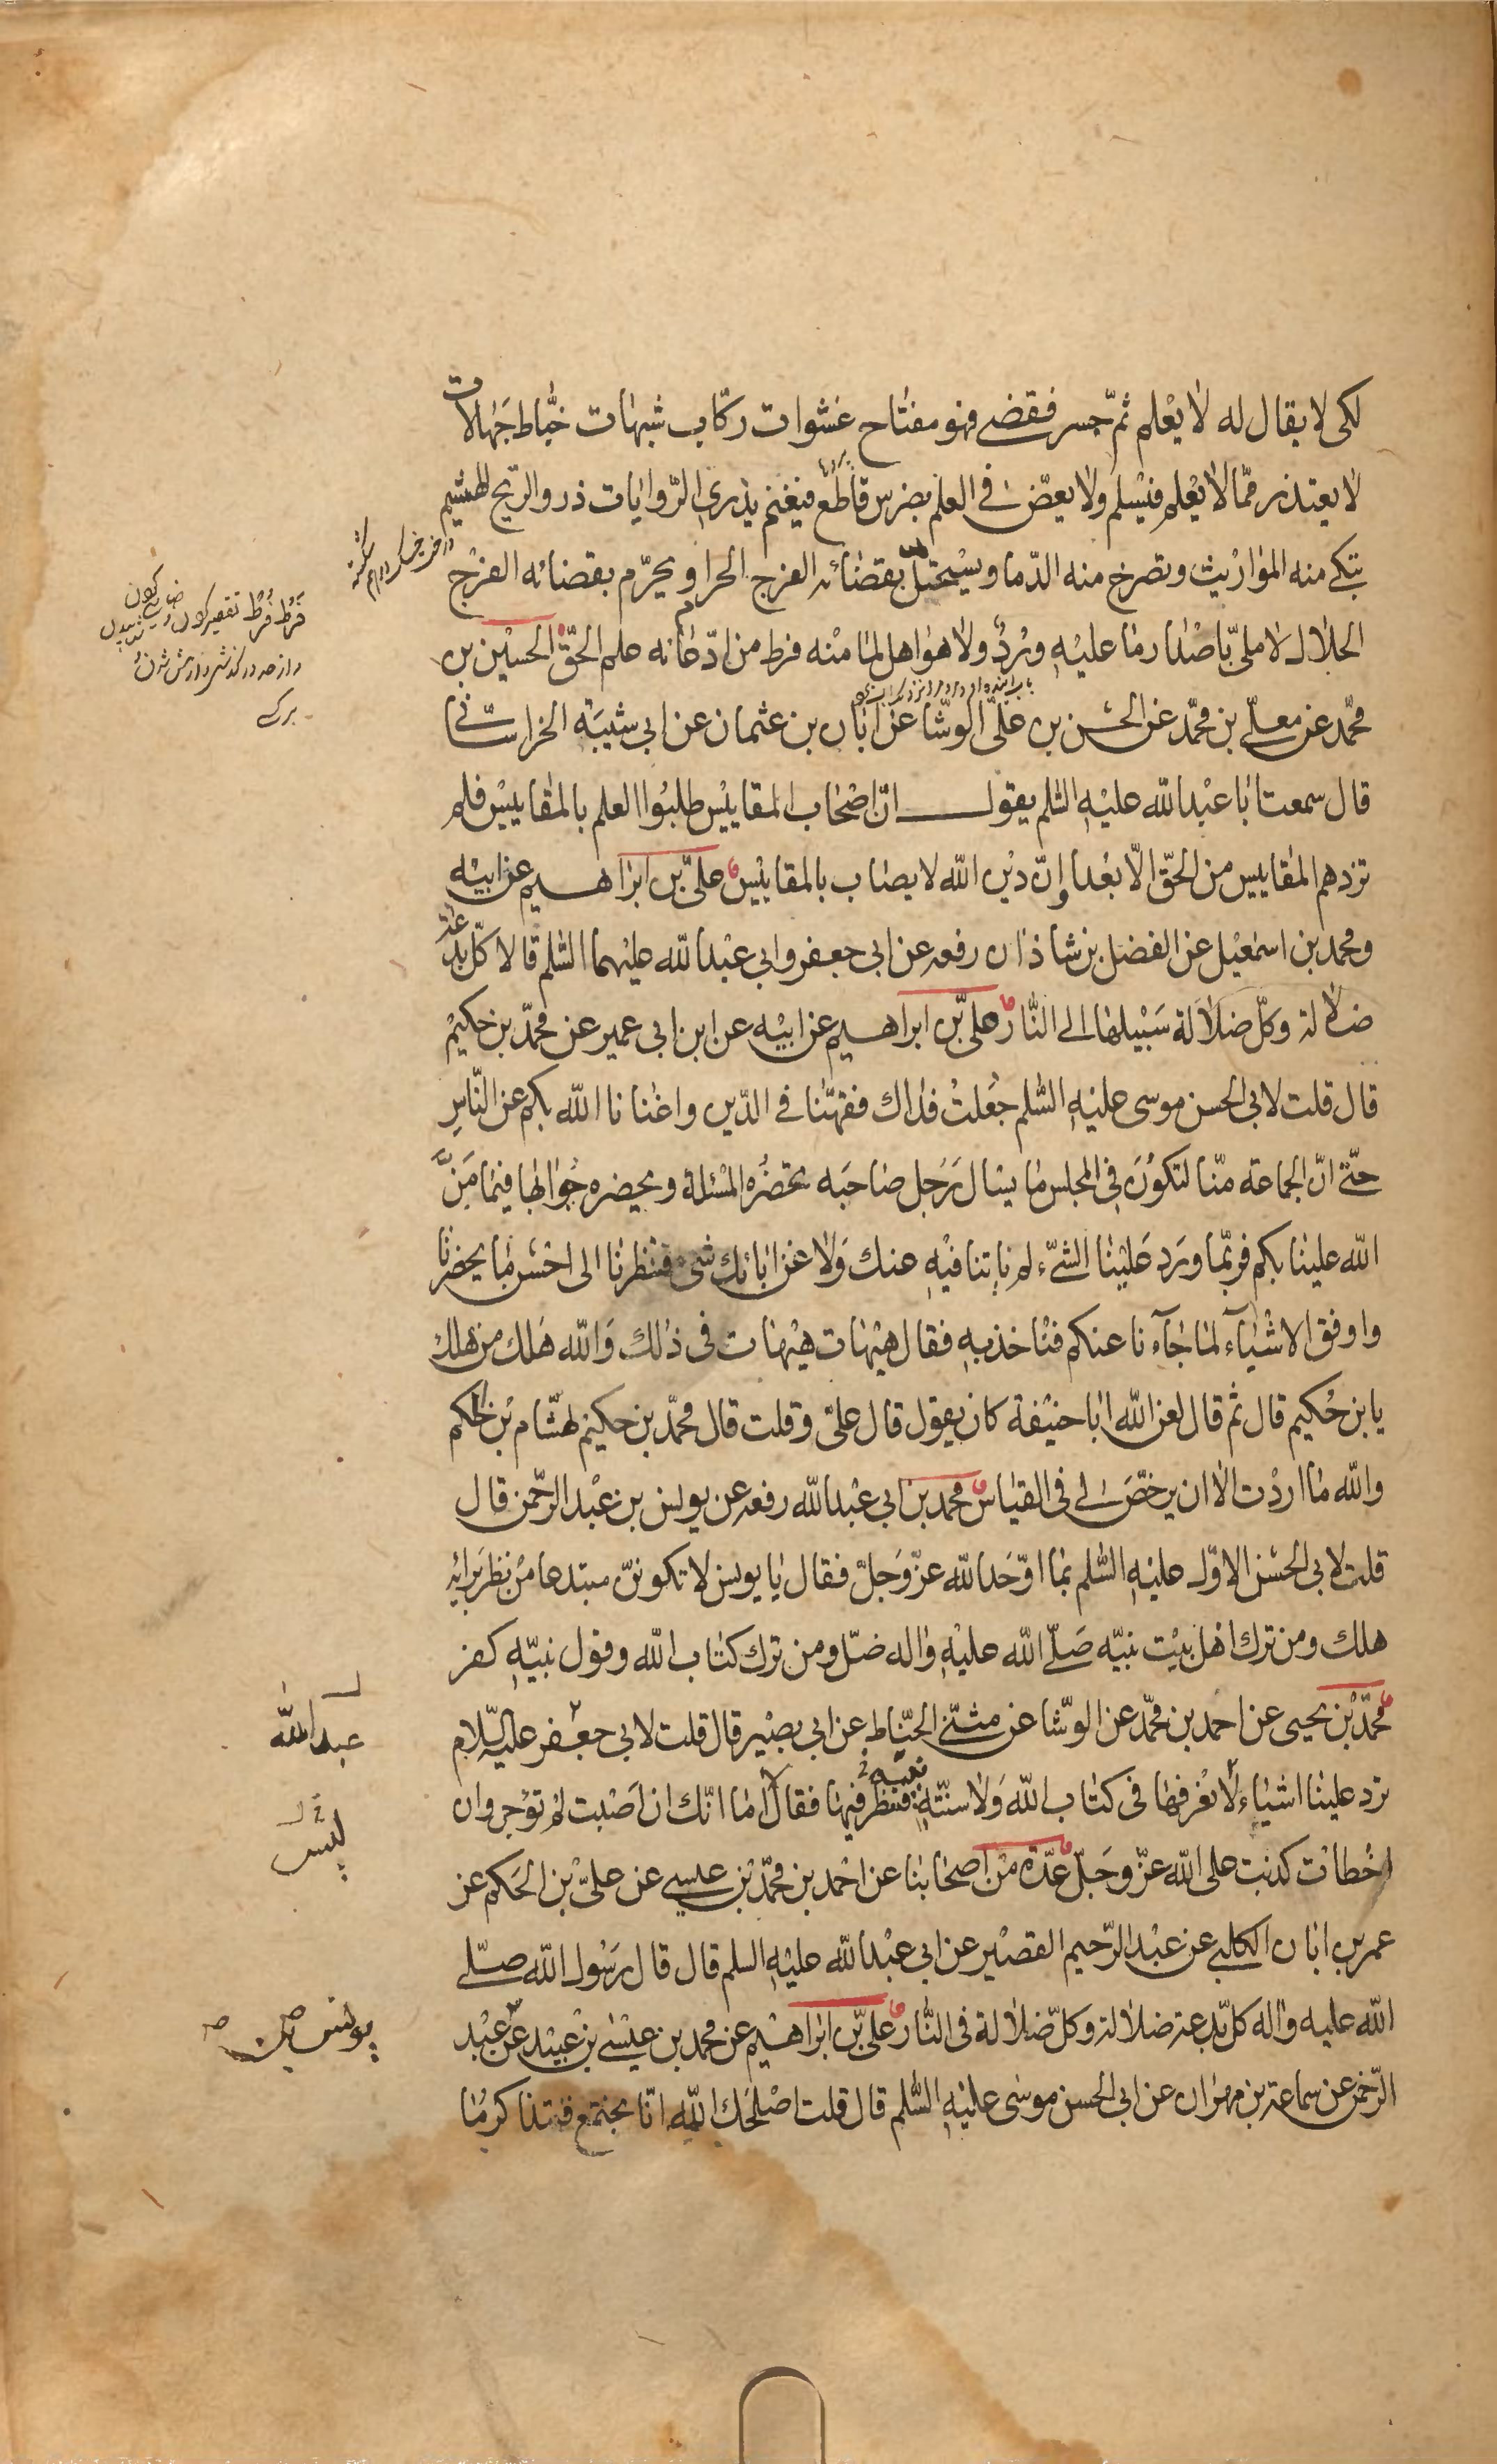 لكى لا يقال له لا يعلم ثمّ جسر فقضى فهو مفتاح عشوات ركّاب شبهات خبّاط جهالات
لا يعتذر ممّا لا يعلم فيسلم ولا يعضّ فى العلم بضرس قاطع فيغنم يذرى الرّوايات ذرو الريح الهشيم
تبكى منه المواريث وتصرخ منه الدّما ويستحلّ بقضائه الفرج الحرام ويحرّم بقضائه الفرج
الحلال لا ملىّ باصدار ما عليه ورد ولا هو اهل لما منه فرط من ادّعائه علم الحقّ الحسين بن
محمّد عن معلّى بن محمّد عن الحسن بن علىّ الوشّا عن ابان بن عثمان عن ابى شيبة الخراسانى
قال سمعت ابا عبد الله عليه السلم يقول انّ اصحاب المقاييس طلبوا العلم بالمقاييس فلم
تزدهم المقاييس من الحقّ الّا بعدا وانّ دين الله لا يصاب بالمقاييس علىّ بن ابراهيم عن ابيه
ومحمد بن اسمعيل عن الفضل بن شاذان رفعه عن ابى جعفر وابى عبد الله عليهما السلم قالا كلّ بدعة
ضلالة وكلّ ضلالة سبيلها الى النّار علىّ بن ابراهيم عن ابيه عن ابن ابى عمير عن محمّد بن حكيم
قال قلت لابى الحسن موسى عليه السّلم جعلت فداك فقهنا فى الدّين واغنانا الله بكم عن النّاس
حتّى انّ الجماعة منّا لتكون فى المجلس ما يسال رجل صاحبه تحضره المسئلة ويحضره جوابها فيما منّ
الله علينا بكم فربّما ورد علينا الشّىء لم ياتنا فيه عنك ولا عن ابائك شىء فنظرنا الى احسن ما يحضرنا
واوفق الاشيآء لما جآءنا عنكم فناخذ به فقال هيهات هيهات فى ذلك والله هلك من هلك
يابن حكيم قال ثم قال لعن الله ابا حنيفة كان يقول قال علىّ وقلت قال محمّد بن حكيم لهشام بن الحكم
والله ما اردت الا ان يرخّص لى فى القياس محمد بن ابى عبد الله رفعه عن يونس بن عبد الرّحمن قال
قلت لابى الحسن الاوّل عليه السّلم بما اوحّد الله عزّ وجلّ فقال يا يونس لا تكوننّ مبتدعا من نظر برايه
هلك ومن ترك اهل بيت نبيّه صلّى الله عليه واله ضلّ ومن ترك كتاب الله وقول نبيّه كفر
محمّد بن يحيى عن احمد بن محمّد عن الوشّا عن مثنّى الحنّاط عن ابى بصير قال قلت لابى جعفر عليه السّلام
ترد علينا اشياء لا نعرفها فى كتاب الله ولا سنّته فننظر فيها فقال لا اما انّك ان اصبت لم توجر وان
اخطات كذبت على الله عزّ وجلّ عدّة من اصحابنا عن احمد بن محمّد بن عيسى عن علىّ بن الحكم عن
عمر بن ابان الكلبى عن عبد الرّحيم القصير عن ابى عبد الله عليه السلم قال قال رسول الله صلّى
الله عليه واله كلّ بدعة ضلالة وكلّ ضلالة فى النّار علىّ بن ابراهيم عن محمد بن عيسى بن عبيد عن عبد
الرّحمن عن سماعة بن مهران عن ابى الحسن موسى عليه السّلم قال قلت اصلحك الله انّا نجتمع فنتذاكر ما
فَرْط فُرُط تقصير كردن
عبد الله
يونس بن